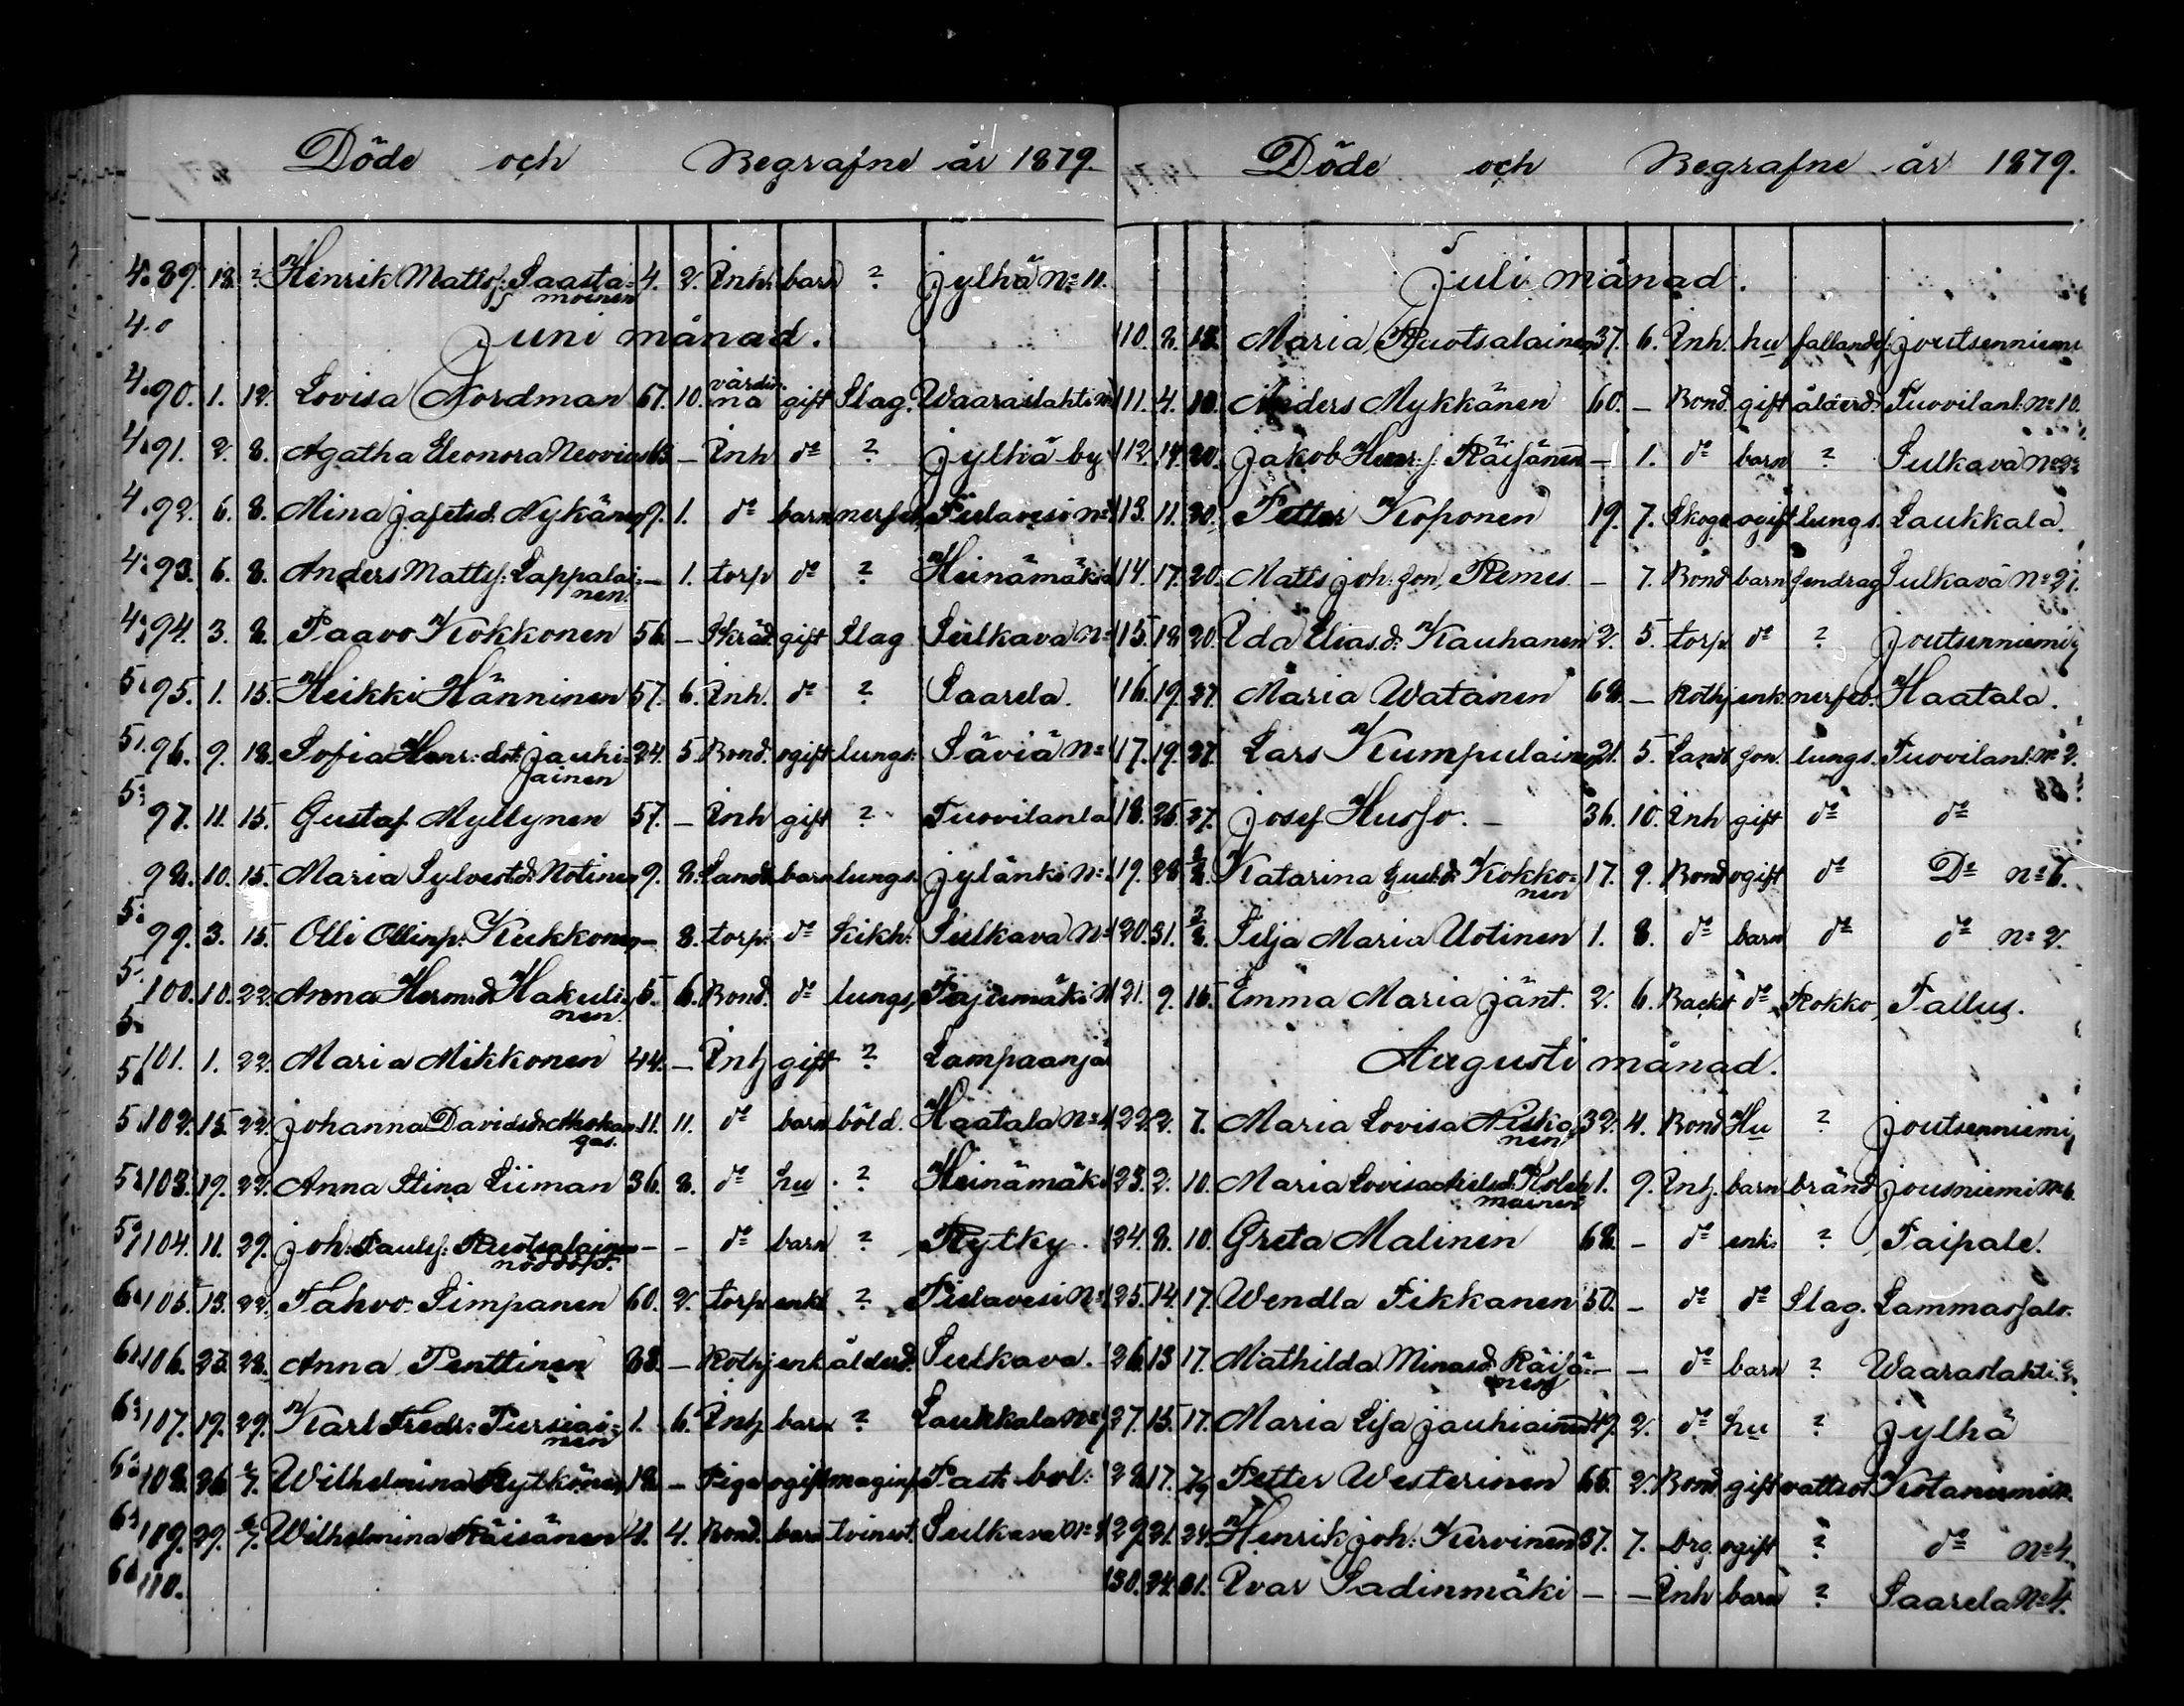 Döde och Begrafne år 1879.
89. 18. ? Henrik Mattsf: Saasta= 4. 2. Inh. barn ? Jylhä No 11.
moinen
Juni månad.
90. 1. 12. Lovisa Nordman 67. 10. värdin- gift Slag. Waaraslahti No
na
91. 2. 8. Agatha Eleonora Neovius 63 — Inh do ? Jylhä by
92. 6. 8. Mina Jafetsd. Nykänen 9. 1. do barn nerfeb. Pielavesi No
93. 6. 8. Anders Mattsf: Lappalai= — 1. torp do ? Heinämäki
nen.
94. 3. 8. Paavo Kokkonen 56. — Skräd. gift Slag Sulkava No
95. 1. 15. Heikki Hänninen 57. 6. Inh. do ? Saarela.
96. 9. 18. Sofia Henr: dot: Jauhi= 24. 5. Bond. ogift lungs: Säviä No
ainen
97. 11. 15. Gustaf Myllynen 57. — Inh gift ? Tuovilanla
98. 10. 15. Maria Sylvestd: Notinen 9. 8. Landb barn lungs. Jylänki No
99. 3. 15. Olli Ollinp: Kukkonen — 8. torp: do Kikh: Sulkava No
100. 10. 22. Anna Hermd. Hakuli= 5. 6. Bond. do lungs. Pajumäki N
nen.
101. 1. 22. Maria Mikkonen 44. — Inh gift ? Lampaanjä
102. 15. 22. Johanna Davidsd: 11. 11. do barn böld. Haatala No
gas.
103. 19. 22. Anna Stina Liiman 36. 8. do hu ? Heinämäki
104. 11. 29. Joh: Paulsf: Ruotsalainen — — do barn ? Rytky.
nöddöpt.
105. 13. 22. Tahvo Simpanen 60. 2. torp enkl ? Pielavesi No
106. 23. 28. Anna Penttinen 88. — Rothj enk ålderd. Sulkava.
107. 19. 29. Karl Fredr: Pursiai= 1. 6. Inh barn ? Laukkala No
nen
108. 26 6/7. Wilhelmina Rytkönen 18. — Piga ogift maginf Past: bol:
109. 29. 6/7. Wilhelmina Räisänen 4. 4. Bond. barn tvinsot. Sulkava No
110.
Döde och Begrafne år 1879.
Juli månad.
110. 2. 13. Maria Ruotsalainen 37. 6. Inh. hu fallandes. Joutsenniemi
111. 4. 10. Anders Mykkänen 60. — Bond. gift ålderd. Tuovilanl: No 10.
112. 14. 20. Jakob Henr: f. Räisänen — 1. do barn ? Sulkava No 22
113. 11. 20. Petter Koponen 19. 7. Skogv ogift lungs. Laukkala.
114. 17. 20. Matts Joh: son Remes. — 7. Bond barn sendrag Sulkava No 27.
115. 18 20. Ida Eliasd: Kauhanen 2. 5. torp do ? Joutsenniemi
116. 19. 27. Maria Watanen 68. — Rothj enk. nerfeb. Haatala.
117. 19. 27. Lars Kumpulainen 21. 5. Landb son. lungs. Tuovilanl. No 2.
118. 25. 27. Josef Husso. — 36. 10. Inh gift do do
119. 28 3/8. Katarina Gustd: Kokko= 17. 9. Bond ogift do Do No 6.
nen
120. 31. 3/8. Silja Maria Uotinen 1. 8. do barn do do No 2.
121. 9. 15. Emma Maria Jänt. 2. 6. Backst do Rokko Pallus.
Augusti månad.
122. 2. 7. Maria Lovisa Niska 32. 4. Bond Hu ? Joutsenniemi
nen
123. 2. 10. Maria Lovisa Koleh 1. 9. Inh. barn bränd Jousniemi No 6.
mainen
124. 8. 10. Greta Malinen 68. — do enk: ? Taipale.
125. 14. 17. Wendla Pikkanen 50. — do do Slag. Lammassalo.
126. 13 17. Mathilda Minasd: Räisä= — — do barn ? Waaraslahti
nen
127. 15. 17. Maria Lisa Jauhiainen 49. 2. do hu ? Jylhä
128. 17. 7/9 Petter Westerinen 65. 2. Bond gift vattsot Kotaniemi N.
129. 21. 24. Henrik Joh: Kurvinen 37. 7. Drg. ogift ? do No 4.
130. 24. 31. Ivar Sadinmäki — — Inh barn ? Saarela No 4.